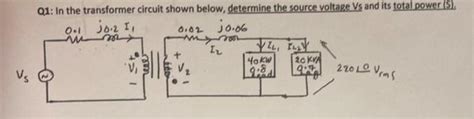 Q1: In the transformer circuit shown below, determine the source voltage Vs and its total power (S).
0.1 j0.2 I₁ 0.02 j0.06
I₂ I_L1 I_L2
Vs + V₁ - + V₂ - 40KW 20KVA 220∠0 Vrms
0.8